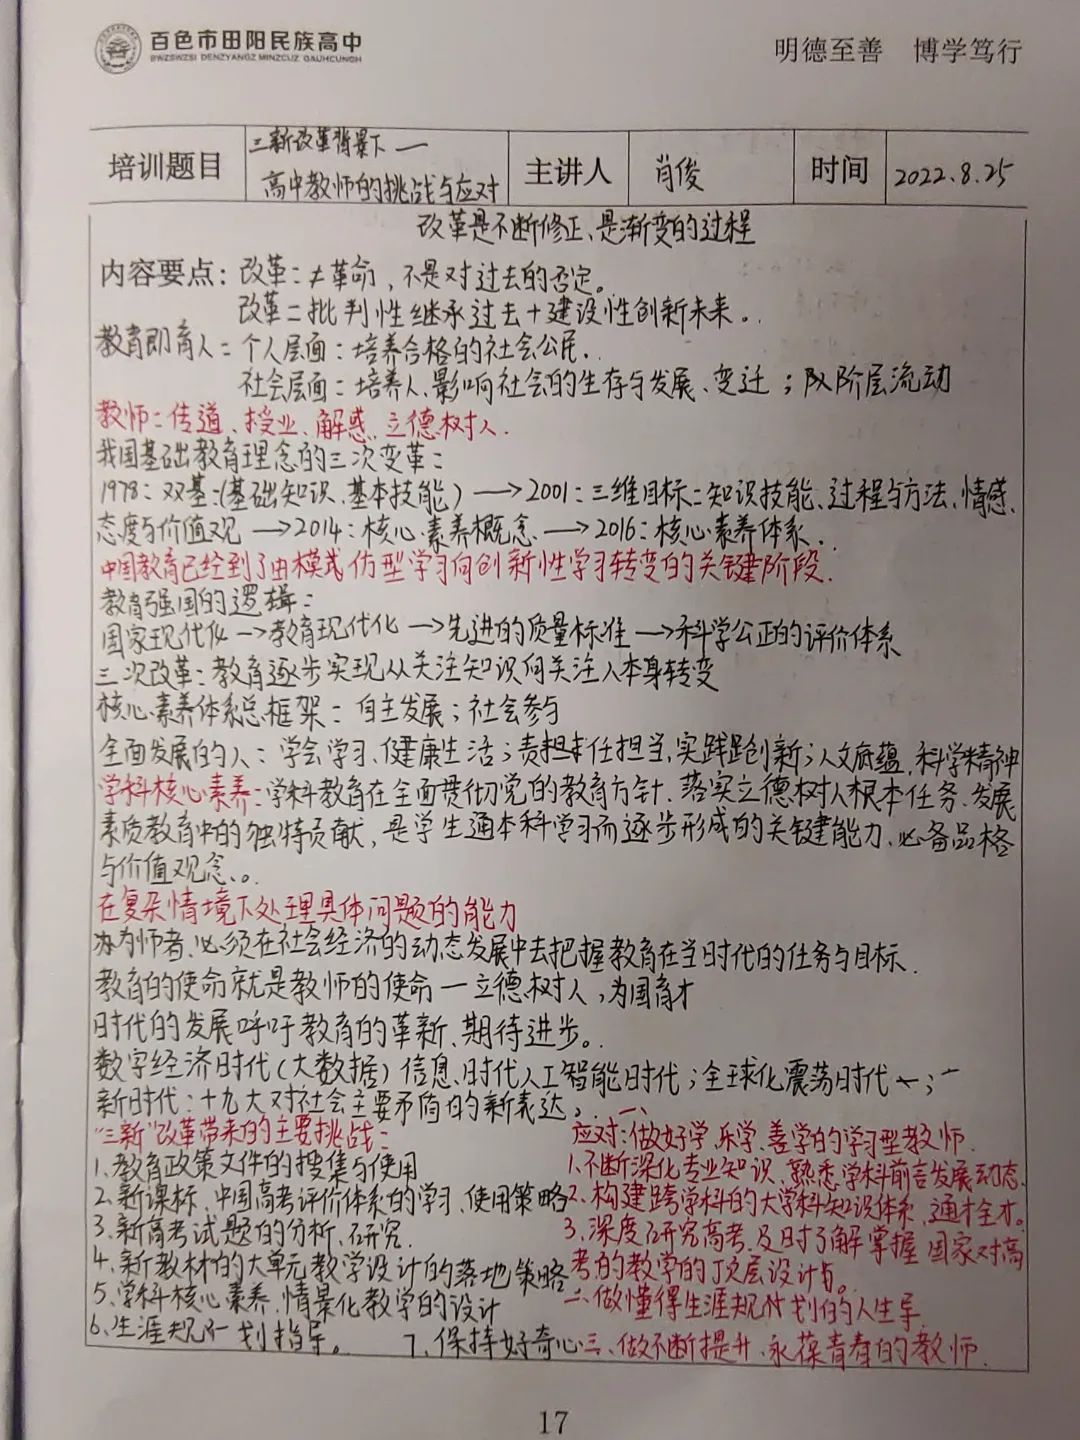 百色市田阳民族高中
BWZSWZSI DENZYANGZ MINZCUZ GAUHCUNGH
明德至善 博学笃行
培训题目
三新改革背景下一
高中教师的挑战与应对
主讲人
肖俊
时间
2022.8.25
改革是不断修正、是渐变的过程
内容要点：改革：≠革命，不是对过去的否定。
改革=批判性继承过去+建设性创新未来。
教育即育人：个人层面：培养合格的社会公民.
社会层面：培养人、影响社会的生存与发展、变迁；队阶层流动
教师：传道、授业、解惑、立德树人.
我国基础教育理念的三次变革：
1978：双基：(基础知识、基本技能)→2001：三维目标：知识技能、过程与方法、情感、
态度与价值观→2014：核心素养概念→2016：核心素养体系.
中国教育已经到了由模式仿型学习向创新性学习转变的关键阶段.
教育强国的逻辑：
国家现代化→教育现代化→先进的质量标准→科学公正的评价体系
三次改革：教育逐步实现从关注知识向关注人本身转变
核心素养体系总框架：自主发展；社会参与
全面发展的人：学会学习、健康生活；责任担当,实践创新；人文底蕴,科学精神
学科核心素养：学科教育在全面贯彻党的教育方针、落实立德树人根本任务、发展
素质教育中的独特贡献，是学生通本科学习而逐步形成的关键能力、必备品格
与价值观念。
在复杂情境下处理具体问题的能力
为师者、必须在社会经济的动态发展中去把握教育在当时代的任务与目标.
教育的使命就是教师的使命一立德树人，为国育才
时代的发展呼吁教育的革新、期待进步。
数字经济时代(大数据)信息、时代人工智能时代；全球化震荡时代
新时代：十九大对社会主要矛盾的新表达。
"三新"改革带来的主要挑战：
1.教育政策文件的搜集与使用
2.新课标、中国高考评价体系的学习、使用策略
3.新高考试题的分析、研究.
4.新教材的大单元教学设计的落地策略
5.学科核心素养、情景化教学的设计
6.生涯规划指导。
7.保持好奇心
一、
应对：做好学、乐学、善学的学习型教师.
1.不断深化专业知识、熟悉学科前言发展动态.
2.构建跨学科的大学科知识体系，通才全才。
3.深度研究高考、及时了解掌握国家对高
考的教学的顶层设计。
二、做懂得生涯规划的人生导
三、做不断提升、永葆青春的教师.
17